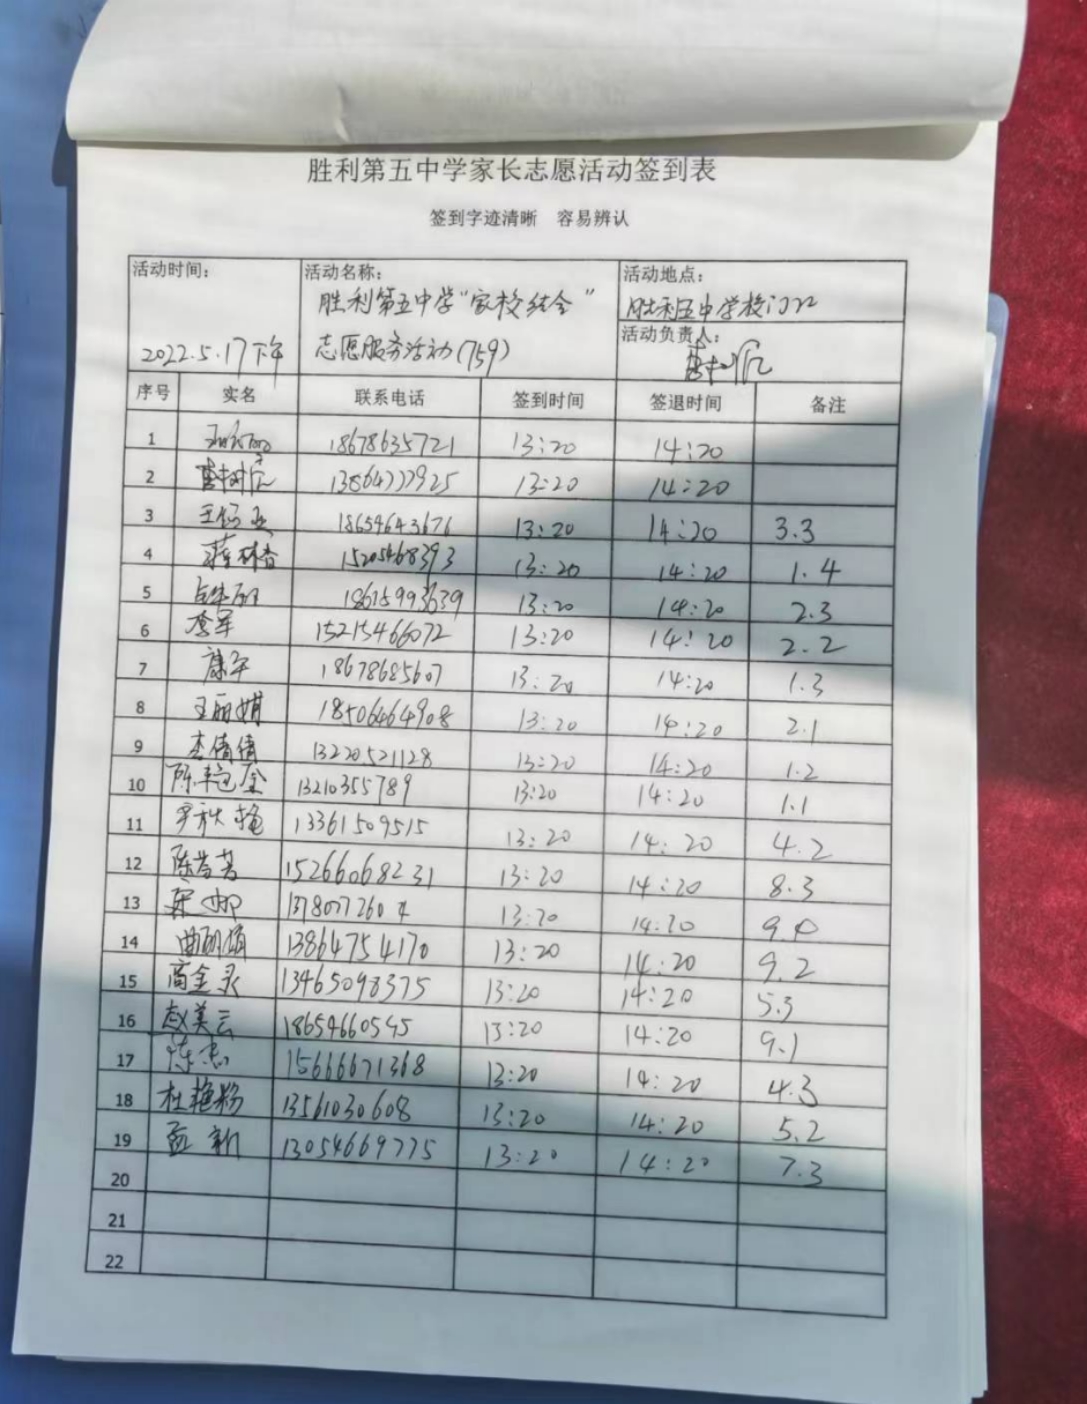 胜利第五中学家长志愿活动签到表
签到字迹清晰 容易辨认
活动时间：
2022.5.17下午
活动名称：
胜利第五中学“家校结合”
志愿服务活动(759)
活动地点：
胜利五中学校门口
活动负责人：
序号 实名 联系电话 签到时间 签退时间 备注
1 18678635721 13:20 14:20
2 13864777925 13:20 14:20
3 18654643676 13:20 14:20 3.3
4 蒋林香 15205468393 13:20 14:20 1.4
5 18615993639 13:20 14:20 2.3
6 李军 15215466072 13:20 14:20 2.2
7 康军 18678685607 13:20 14:20 1.3
8 王丽娟 18506464908 13:20 14:20 2.1
9 李倩倩 13220521128 13:20 14:20 1.2
10 13210355789 13:20 14:20 1.1
11 尹秋艳 13361509515 13:20 14:20 4.2
12 15266068231 13:20 14:20 8.3
13 梁娜 13:20 14:20
14 曲丽娟 13864754170 13:20 14:20 9.2
15 商金录 13465098375 13:20 14:20 5.3
16 赵美云 18654660545 13:20 14:20 9.1
17 陈志 15666671368 13:20 14:20 4.3
18 杜艳粉 13561030608 13:20 14:20 5.2
19 孟新 13054669775 13:20 14:20 7.3
20
21
22